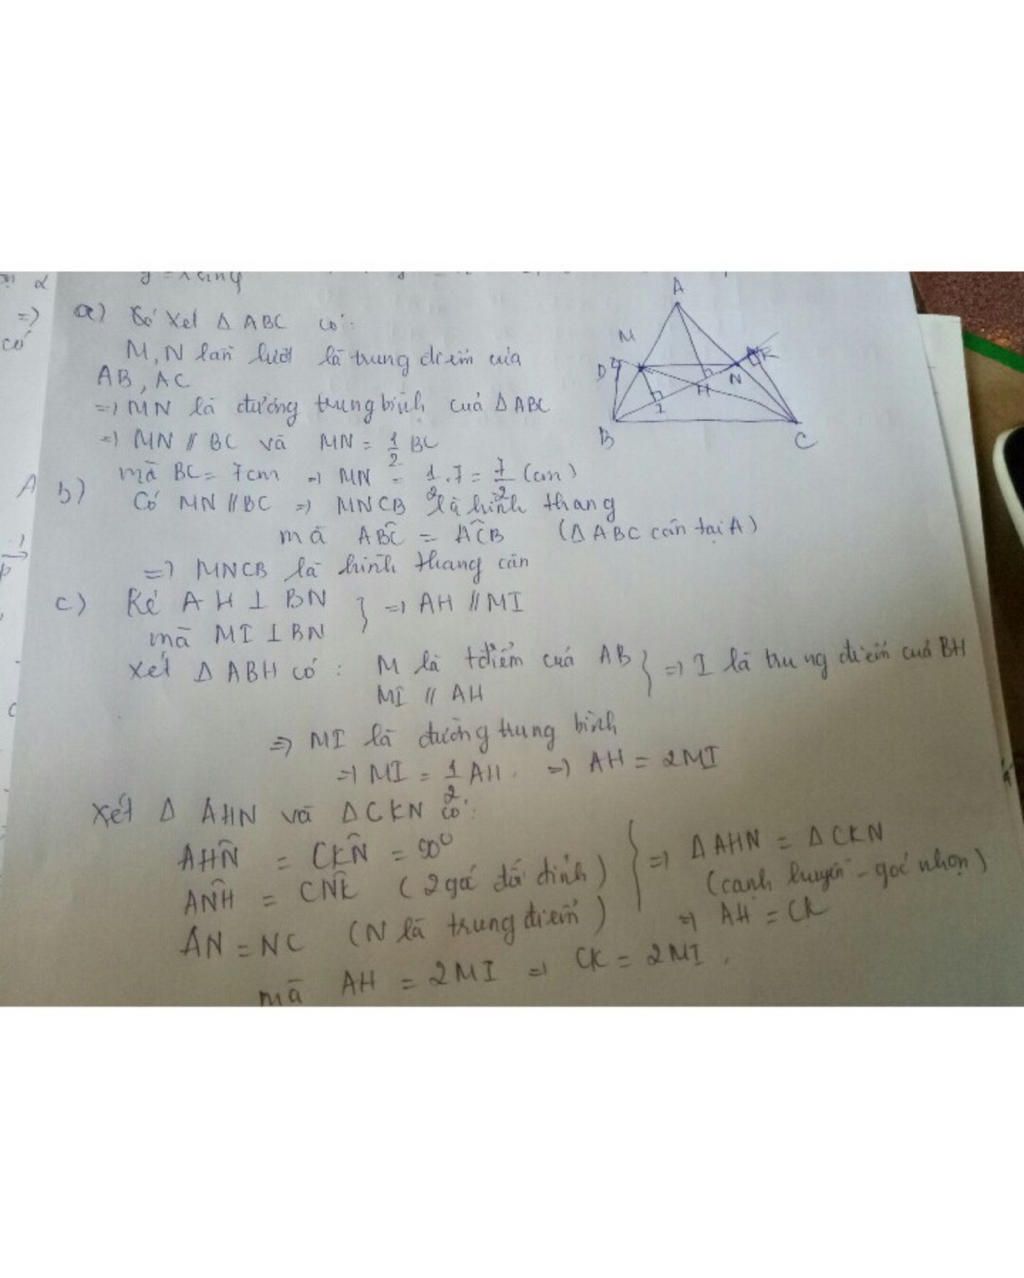 α
y = x siny
=)
có
a) Xét Δ ABC có:
M, N lần lượt là trung điểm của
AB, AC
=) MN là đường trung bình của ΔABC
=) MN // BC và MN = 1/2 BC
mà BC = 7cm =) MN = 1/2 . 7 = 7/2 (cm)
A
b) Có MN // BC =) MNCB là hình thang
mà ABĈ = AĈB (Δ ABC cân tại A)
=) MNCB là hình thang cân
c) Kẻ AH ⊥ BN } =) AH // MI
mà MI ⊥ BN
Xét Δ ABH có: M là tđiểm của AB } =) I là trung điểm của BH
MI // AH
=) MI là đường trung bình
=) MI = 1/2 AH. =) AH = 2MI
Xét Δ AHN và ΔCKN có:
AHN̂ = CKN̂ = 90°
ANĤ = CNK̂ (2 góc đối đỉnh) } =) ΔAHN = ΔCKN
(cạnh huyền - góc nhọn)
AN = NC (N là trung điểm) =) AH = CK
mà AH = 2MI =) CK = 2MI.
A
M
D
K
H
N
I
B
C